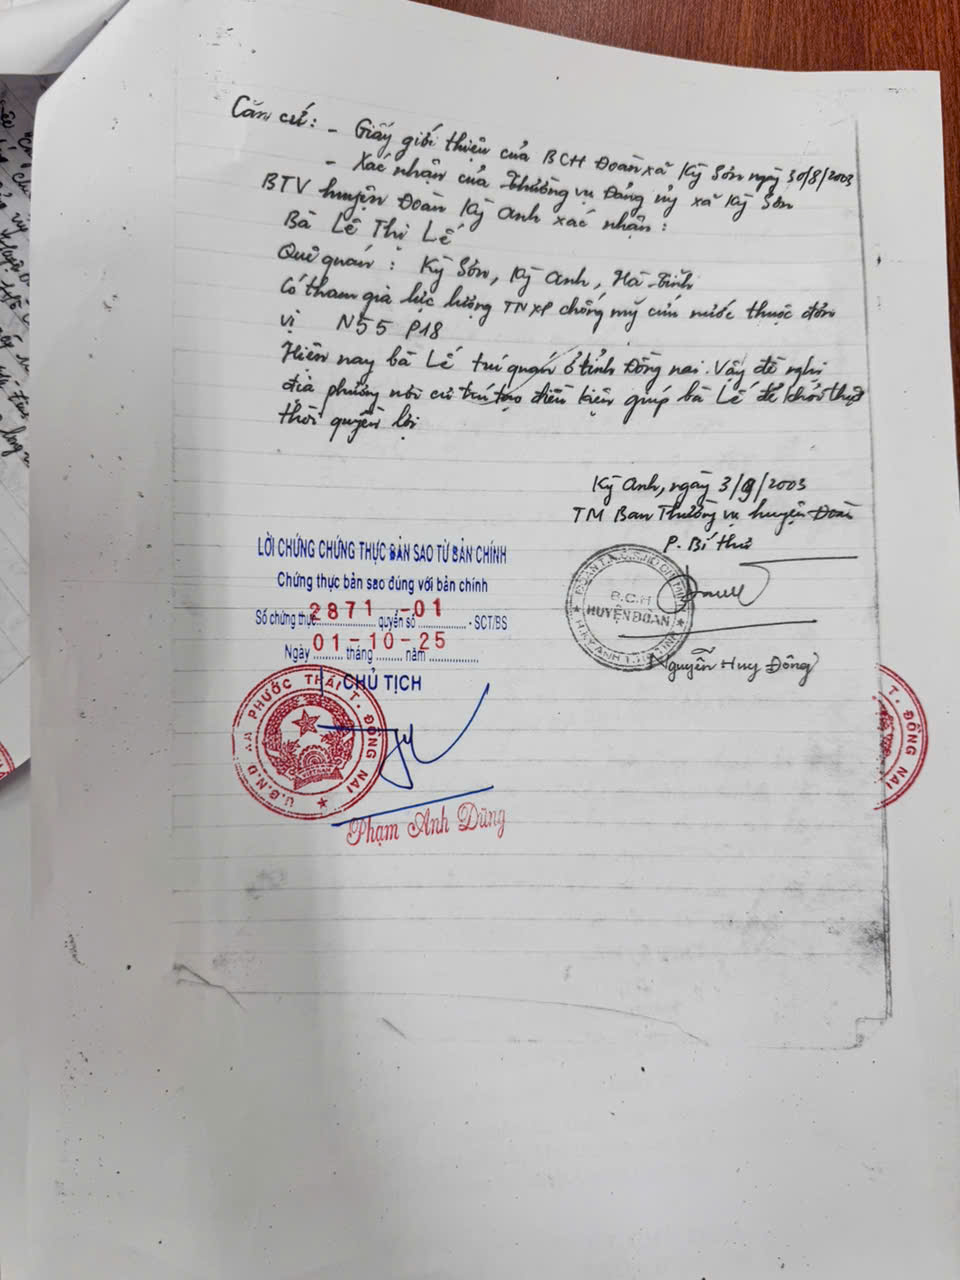 Căn cứ: - Giấy giới thiệu của BCH Đoàn xã Kỳ Sơn ngày 30/8/2003
- Xác nhận của Thường vụ Đảng uỷ xã Kỳ Sơn
BTV huyện Đoàn Kỳ Anh xác nhận:
Bà Lê Thị Lế
Quê quán: Kỳ Sơn, Kỳ Anh, Hà Tĩnh
Có tham gia lực lượng TNXP chống mỹ cứu nước thuộc đơn
vị N55 P18
Hiện nay bà Lế trú quán ở tỉnh Đồng nai. Vậy đề nghị
địa phương nơi cư trú tạo điều kiện giúp bà Lế để khỏi thiệt
thòi quyền lợi
Kỳ Anh, ngày 3/9/2003
TM Ban Thường vụ huyện Đoàn
P. Bí thư
B.C.H
HUYỆN ĐOÀN
Nguyễn Huy Đồng
LỜI CHỨNG CHỨNG THỰC BẢN SAO TỪ BẢN CHÍNH
Chứng thực bản sao đúng với bản chính
Số chứng thực 2871 quyển số -01 - SCT/BS
Ngày 01 tháng 10 năm 25
CHỦ TỊCH
U.B.N.D XÃ PHƯỚC THÁI T. ĐỒNG NAI
VIỆT NAM
Phạm Anh Dũng
T. ĐỒNG NAI